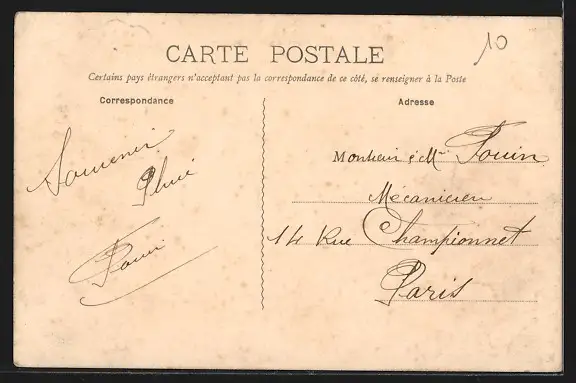 10
CARTE POSTALE
Certains pays étrangers n'acceptent pas la correspondance de ce côté, se renseigner à la Poste
Correspondance
Adresse
Souvenir
Monsieur & Mme Pouin
Mécanicien
14 Rue Championnet
Paris